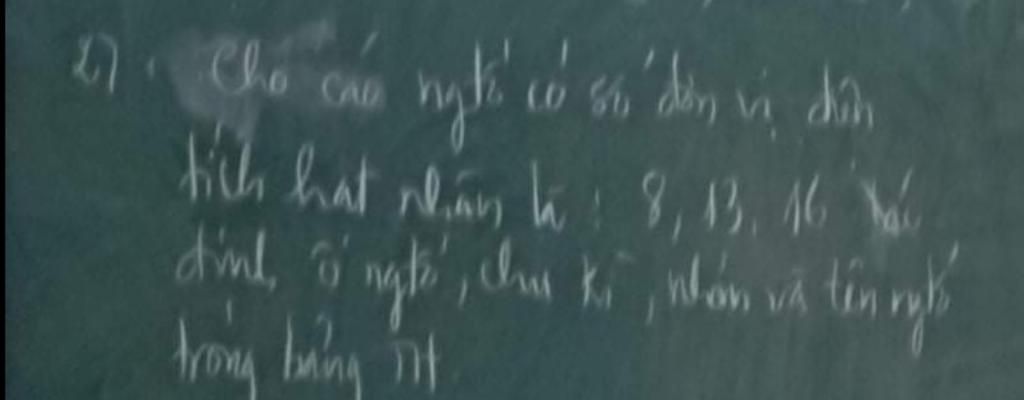 27. Cho các ngtố có số đơn vị điện
tích hạt nhân là : 8, 13, 16 Xác
định ô ngtố, chu kì, nhóm và tên ngtố
trong bảng TH